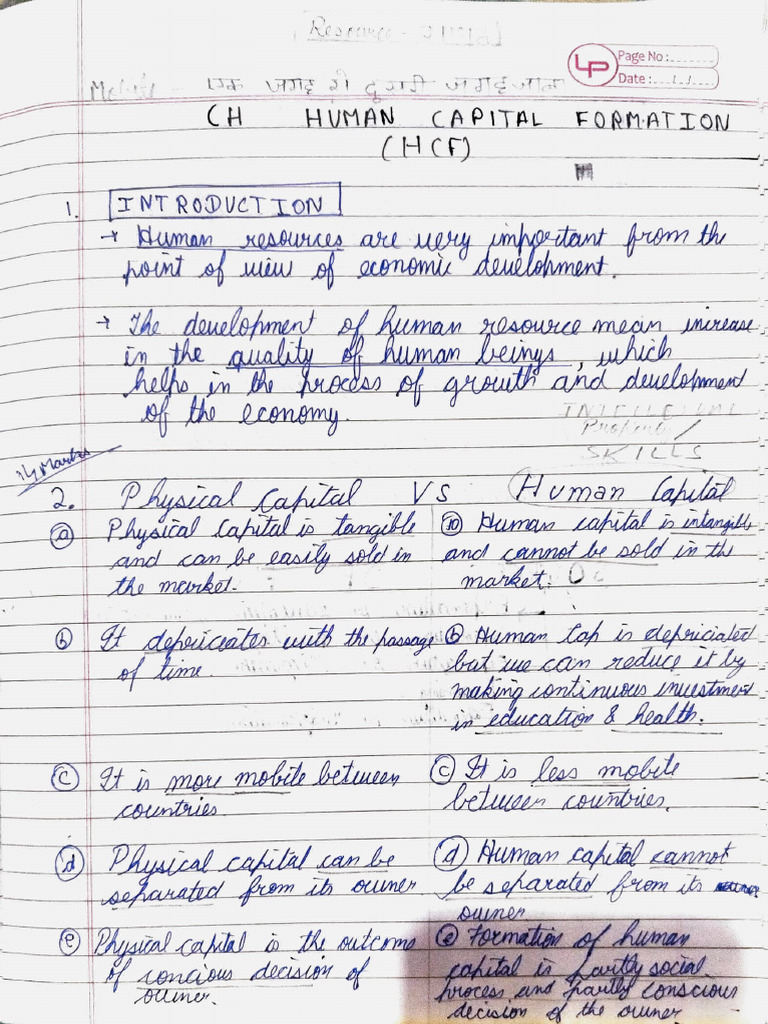 Resource
LP
Page No :
Date :
एक जगह से दूसरी जगह जाना
CH HUMAN CAPITAL FORMATION
(HCF)
1. INTRODUCTION
→ Human resources are very important from the
point of view of economic development.
→ The development of human resource mean increase
in the quality of human beings, which
helps in the process of growth and development
of the economy.
Property
SKILLS
Marks
2. Physical Capital VS Human Capital
(a) Physical Capital is tangible
and can be easily sold in
the market.
(a) Human capital is intangible
and cannot be sold in the
market.
(b) It depriceates with the passage
of time.
(b) Human Cap is depriciated
but we can reduce it by
making continuous investment
in education & health.
(c) It is more mobile between
countries.
(c) It is less mobile
between countries.
(d) Physical capital can be
separated from its owner
(d) Human capital cannot
be separated from its
owner
(e) Physical capital is the outcome
of concious decision of
owner.
(e) Formation of human
capital is partly social
process and partly conscious
decision of the owner